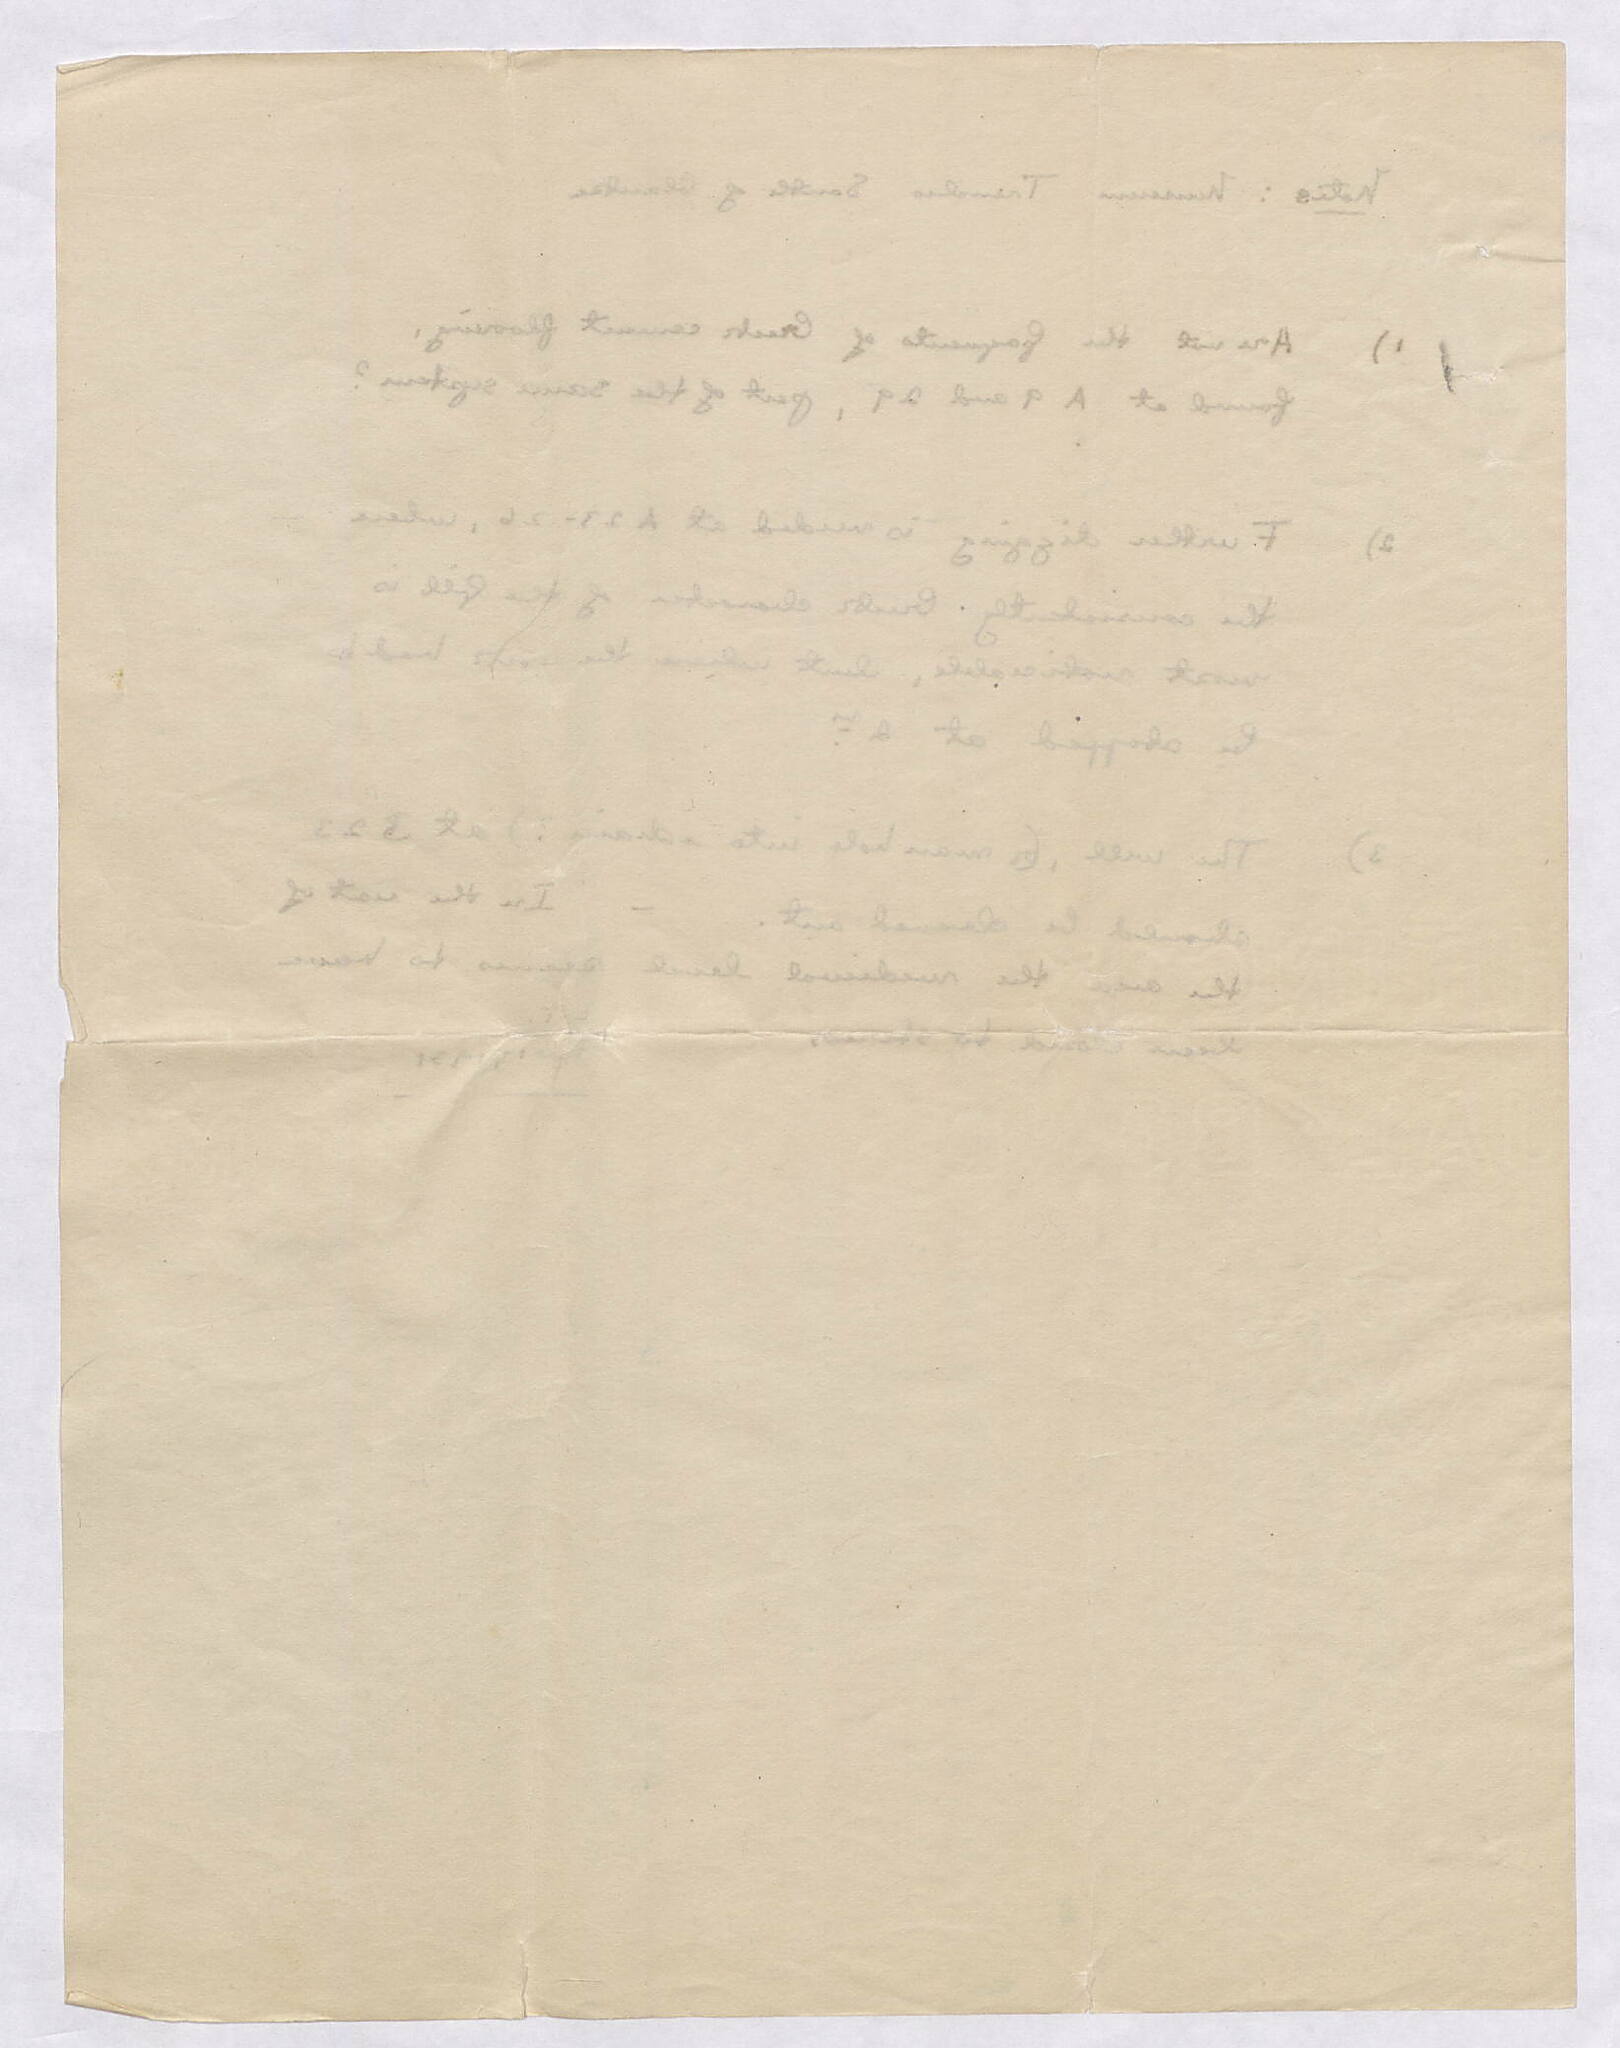 Notes : Museum Trenches South of
1) Are not the fragments of Greek cement flooring,
found at A 9 and 29, part of the same system?
2) Further digging is needed at A 23-26, where
the consistently Greek character of the fill is
most noticeable, but where the work had to
be stopped at 2
3) The well, (or manhole into a drain?) at B 23
should be cleaned out. – In the rest of
the area the medieval level seems to have
been